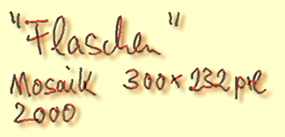 "Flaschen"
Mosaik 300 x 232 pxl
2000